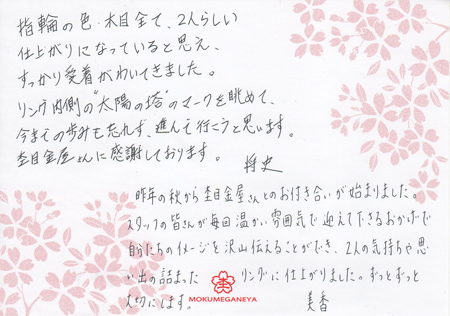 指輪の色・木目全て、2人らしい
仕上がりになっていると思え、
すっかり愛着がわいてきました。
リング内側の"太陽の塔"のマークを眺めて、
今までの歩みも忘れず、進んで行こうと思います。
杢目金屋さんに感謝しております。 将史
昨年の秋から杢目金屋さんとのお付き合いが始まりました。
スタッフの皆さんが毎回温かい雰囲気で迎えて下さるおかげで
自分たちのイメージを沢山伝えることができ、2人の気持ちや思
い出の詰まった リングに仕上がりました。ずっとずっと
大切にします。 美香
杢
MOKUMEGANEYA